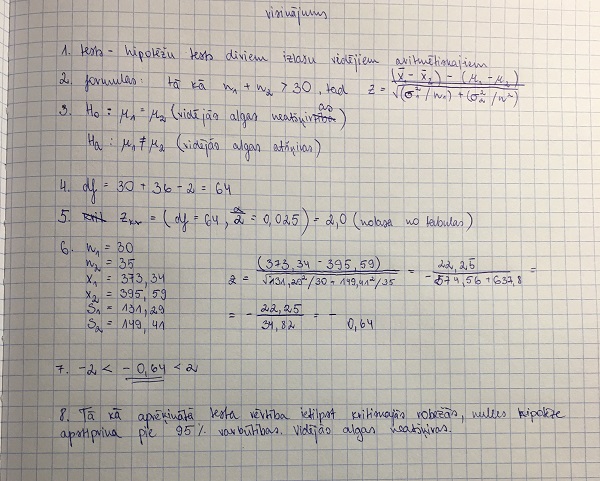 risinājums
1. tests - hipotēžu tests diviem izlašu vidējiem aritmētiskajiem
2. formulas: tā kā n1 + n2 > 30, tad z = (x̄ - x̄2) - (μ1 - μ2) / √(σ1²/n1) + (σ2²/n²)
3. H0 : μ1 = μ2 (vidējās algas neatšķiras)
Ha : μ1 ≠ μ2 (vidējās algas atšķiras)
4. df = 30 + 36 - 2 = 64
5. zkr = (df = 64, α/2 = 0,025) = 2,0 (nolasa no tabulas)
6. n1 = 30
n2 = 35
x1 = 373,34
x2 = 395,59
S1 = 131,29
S2 = 149,41
z = (373,34 - 395,59) / √131,29²/30 + 149,41²/35 = 22,25 / - 574,56 + 637,8 =
= - 22,25 / 34,82 = - 0,64
7. -2 < - 0,64 < 2
8. Tā kā aprēķinātā testa vērtība ietilpst kritiskajās robežās, nulles hipotēze
apstiprina pie 95% varbūtības. Vidējās algas neatšķiras.